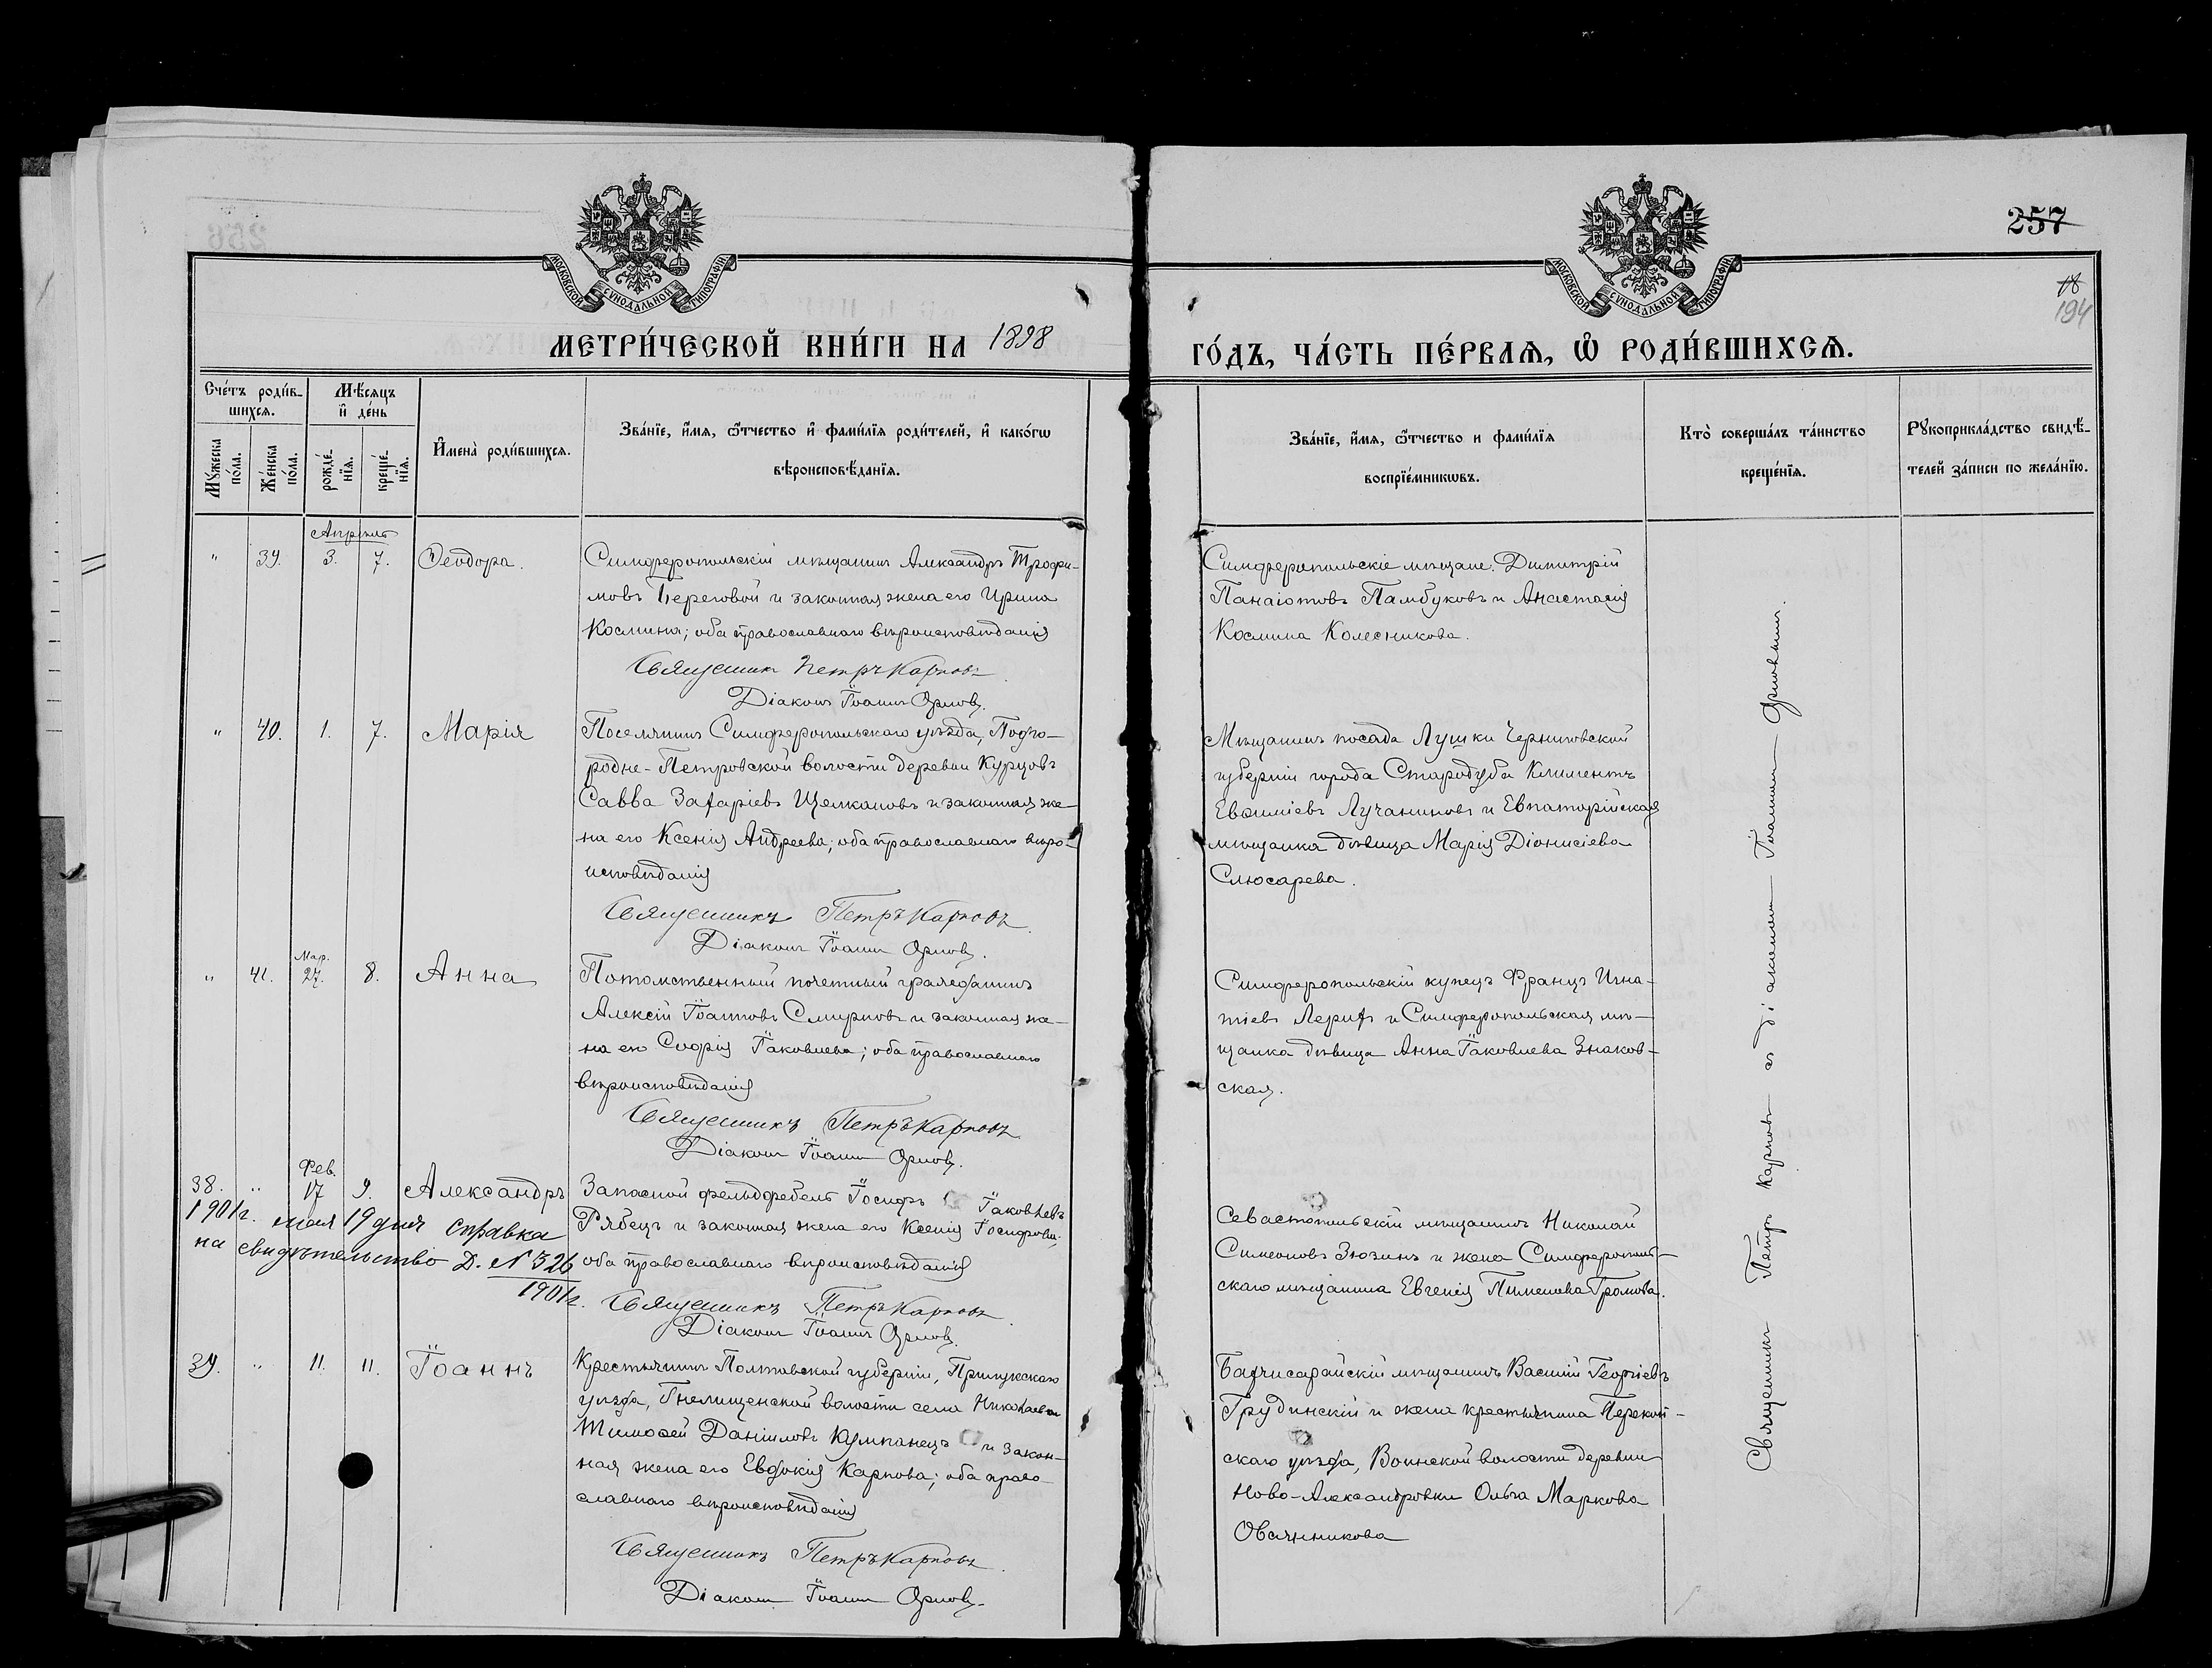 МОСКОВСКОЙ СУНОДАЛЬНОЙ ТИПОГРАФІИ
МЕТРИ́ЧЕСКОЙ КНИ́ГИ НА 1898
Сче́тъ роди́в-
шихсѧ.
Мѣ́сѧцъ
и҆ де́нь
Мꙋ́жеска
по́ла.
Же́нска
по́ла.
рожде́-
нїѧ.
креще́-
нїѧ.
И҆мена̀ роди́вшихсѧ.
Зва́нїе, и҆́мѧ, ѻ҆́тчество и҆ фами́лїѧ роди́телей, и҆ како́гѡ
вѣроисповѣ́данїѧ.
Апрѣль
" 39. 3. 7. Ѳеодора.
Симферопольскій мѣщанинъ Александръ Трофи-
мовъ Береговой и законная жена его Ирина
Космина; оба православнаго вѣроисповѣданія
Священникъ Петръ Карповъ
Діаконъ Іоаннъ Орловъ.
" 40. 1. 7. Марія
Поселянинъ Симферопольскаго уѣзда, Подго-
родне-Петровской волости деревни Курцовъ
Савва Захаріевъ Щелкановъ и законная же-
на его Ксенія Андреева; оба православнаго вѣро-
исповѣданія
Священникъ Петръ Карповъ
Діаконъ Іоаннъ Орловъ.
Мар.
" 41. 27. 8. Анна
Потомственный почетный гражданинъ
Алексій Іоанновъ Смирновъ и законная же-
на его Софія Іаковлева; оба православнаго
вѣроисповѣданія
Священникъ Петръ Карповъ
Діаконъ Іоаннъ Орловъ.
Фев.
38. " 17 9. Александръ
Запасной фельдфебель Іосифъ Іаковлевъ
Рябецъ и законная жена его Ксенія Іосифова;
оба православнаго вѣроисповѣданія
Священникъ Петръ Карповъ
Діаконъ Іоаннъ Орловъ.
1901г. мая 19 дня справка
на свидѣтельство Д. № 326
1901г.
39. " 11. 11. Іоаннъ
Крестьянинъ Полтавской губерніи, Прилукскаго
уѣзда, Гнелищенской волости села Николаевки
Тимоѳей Даніиловъ Кумпанецъ и закон-
ная жена его Евдокія Карпова; оба право-
славнаго вѣроисповѣданія
Священникъ Петръ Карповъ
Діаконъ Іоаннъ Орловъ.
257
18
194
МОСКОВСКОЙ СУНОДАЛЬНОЙ ТИПОГРАФІИ
ГО́ДЪ, ЧА́СТЬ ПЕ́РВАѦ, Ѡ҆ РОДИ́ВШИХСѦ.
Зва́нїе, и҆́мѧ, ѻ҆́тчество и фами́лїѧ
воспрїе́мникѡвъ.
Кто̀ соверша́лъ та́инство
креще́нїѧ.
Рꙋкоприкла́дство свидѣ́-
телей за́писи по жела́нїю.
Симферопольскіе мѣщане: Димитрій
Панаіотовъ Памбуковъ и Анастасія
Космина Колесникова.
Мѣщанинъ посада Лушки Черниговской
губерніи города Стародуба Климентъ
Евѳиміевъ Лучаниновъ и Евпаторійская
мѣщанка дѣвица Марія Діонисіева
Слюсарева.
Симферопольскій купецъ Францъ Игна-
тіевъ Лерихъ и Симферопольская мѣ-
щанка дѣвица Анна Іаковлева Знаков-
ская.
Севастопольскій мѣщанинъ Николай
Симеоновъ Зюзинъ и жена Симферополь-
скаго мѣщанина Евгенія Пименова Громова.
Бахчисарайскій мѣщанинъ Василій Георгіевъ
Грудинскій и жена крестьянина Перекоп-
скаго уѣзда, Воинской волости деревни
Ново-Александровки Ольга Маркова
Овсянникова
Священникъ Петръ Карповъ съ діакономъ Іоанномъ Орловымъ.